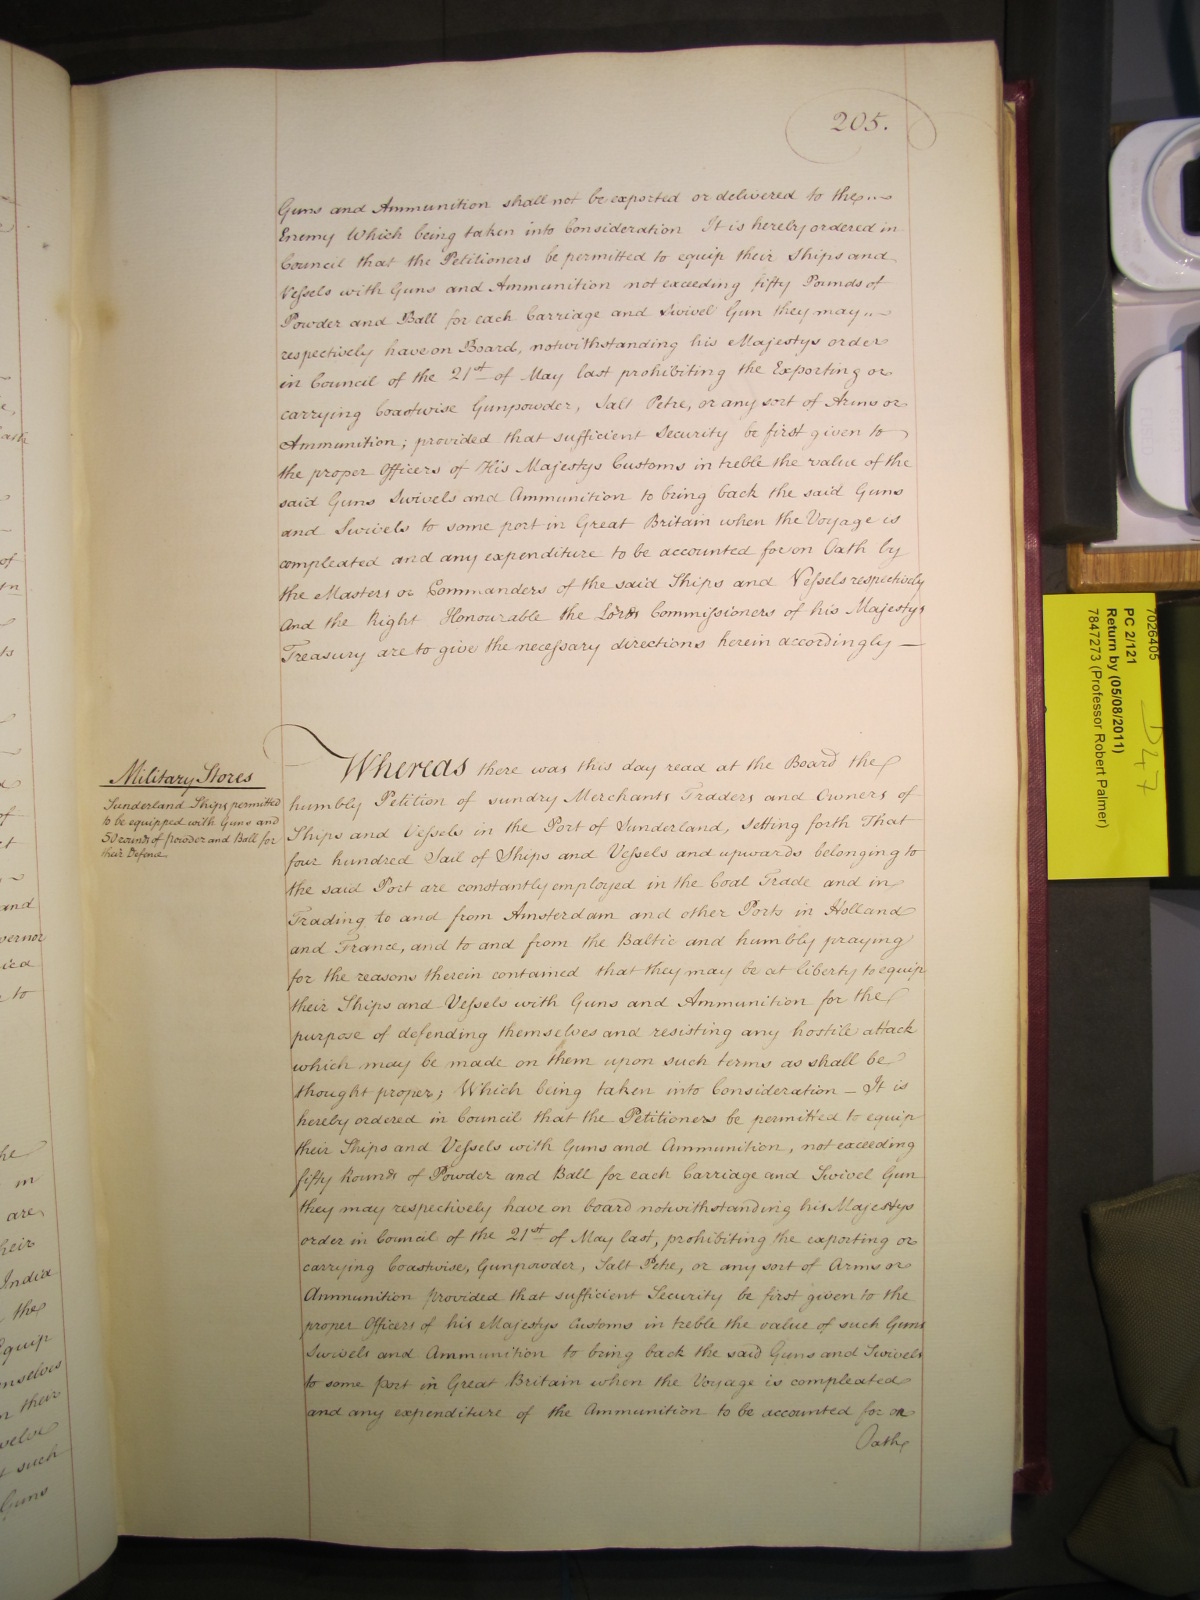 205.
Guns and Ammunition shall not be exported or delivered to the
Enemy Which being taken into Consideration It is hereby ordered in
Council that the Petitioners be permitted to equip their Ships and
Vessels with Guns and Ammunition not exceeding fifty Pounds of
Powder and Ball for each Carriage and Swivel Gun they may
respectively have on Board, notwithstanding his Majestys order
in Council of the 21st of May last prohibiting the Exporting or
carrying Coastwise Gunpowder, Salt Petre, or any sort of Arms or
Ammunition; provided that sufficient Security be first given to
the proper Officers of His Majestys Customs in treble the value of the
said Guns Swivels and Ammunition to bring back the said Guns
and Swivels to some port in Great Britain when the Voyage is
compleated and any expenditure to be accounted for on Oath by
the Masters or Commanders of the said Ships and Vessels respectively
And the Right Honourable the Lords Commissioners of his Majestys
Treasury are to give the necessary directions herein accordingly —
Military Stores
Sunderland Ships permitted
to be equipped with Guns and
50 rounds of powder and Ball for
their Defence
Whereas there was this day read at the Board the
humbly Petition of sundry Merchants Traders and Owners of
Ships and Vessels in the Port of Sunderland, setting forth That
four hundred Sail of Ships and Vessels and upwards belonging to
the said Port are constantly employed in the Coal Trade and in
Trading to and from Amsterdam and other Ports in Holland
and France, and to and from the Baltic and humbly praying
for the reasons therein contained that they may be at liberty to equip
their Ships and Vessels with Guns and Ammunition for the
purpose of defending themselves and resisting any hostile attack
which may be made on them upon such terms as shall be
thought proper; Which being taken into Consideration — It is
hereby ordered in Council that the Petitioners be permitted to equip
their Ships and Vessels with Guns and Ammunition, not exceeding
fifty Rounds of Powder and Ball for each Carriage and Swivel Gun
they may respectively have on board notwithstanding his Majestys
order in Council of the 21st of May last, prohibiting the exporting or
carrying Coastwise, Gunpowder, Salt Petre, or any sort of Arms or
Ammunition provided that sufficient Security be first given to the
proper Officers of his Majestys Customs in treble the value of such Guns
Swivels and Ammunition to bring back the said Guns and Swivels
to some port in Great Britain when the Voyage is compleated
and any expenditure of the Ammunition to be accounted for on
Oath
7026405
PC 2/121
Return by (05/08/2011)
7847273 (Professor Robert Palmer)
D47
of
and
to
he
in
are
their
India
the
Equip
their
such
Guns